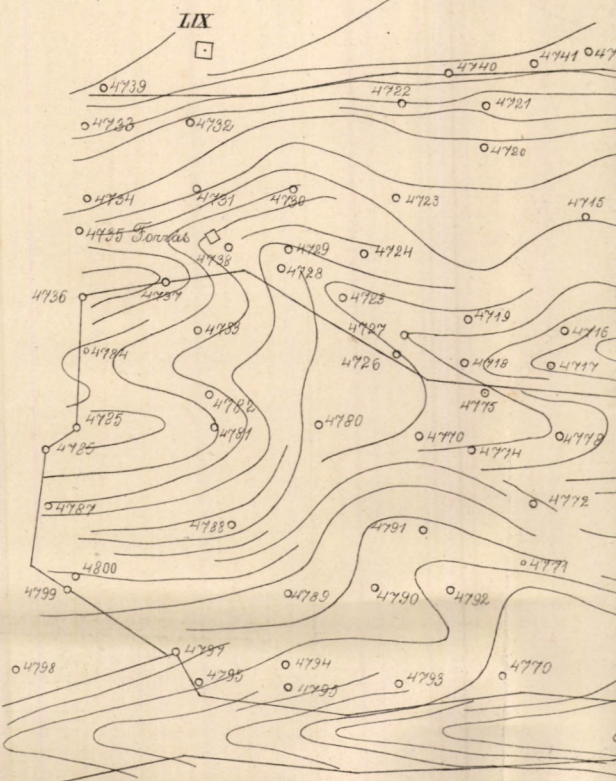 LIX
4741
4740
4739
4722
4721
4733
4732
4720
4734
4731
4730
4723
4715
4735 Forrás
4738
4729
4724
4728
4737
4736
4725
4719
4727
4716
4733
4784
4726
4718
4717
4775
4782
4785
4781
4780
4770
4778
4786
4774
4787
4772
4788
4791
4771
4800
4799
4789
4790
4792
4797
4798
4794
4770
4795
4795
4793